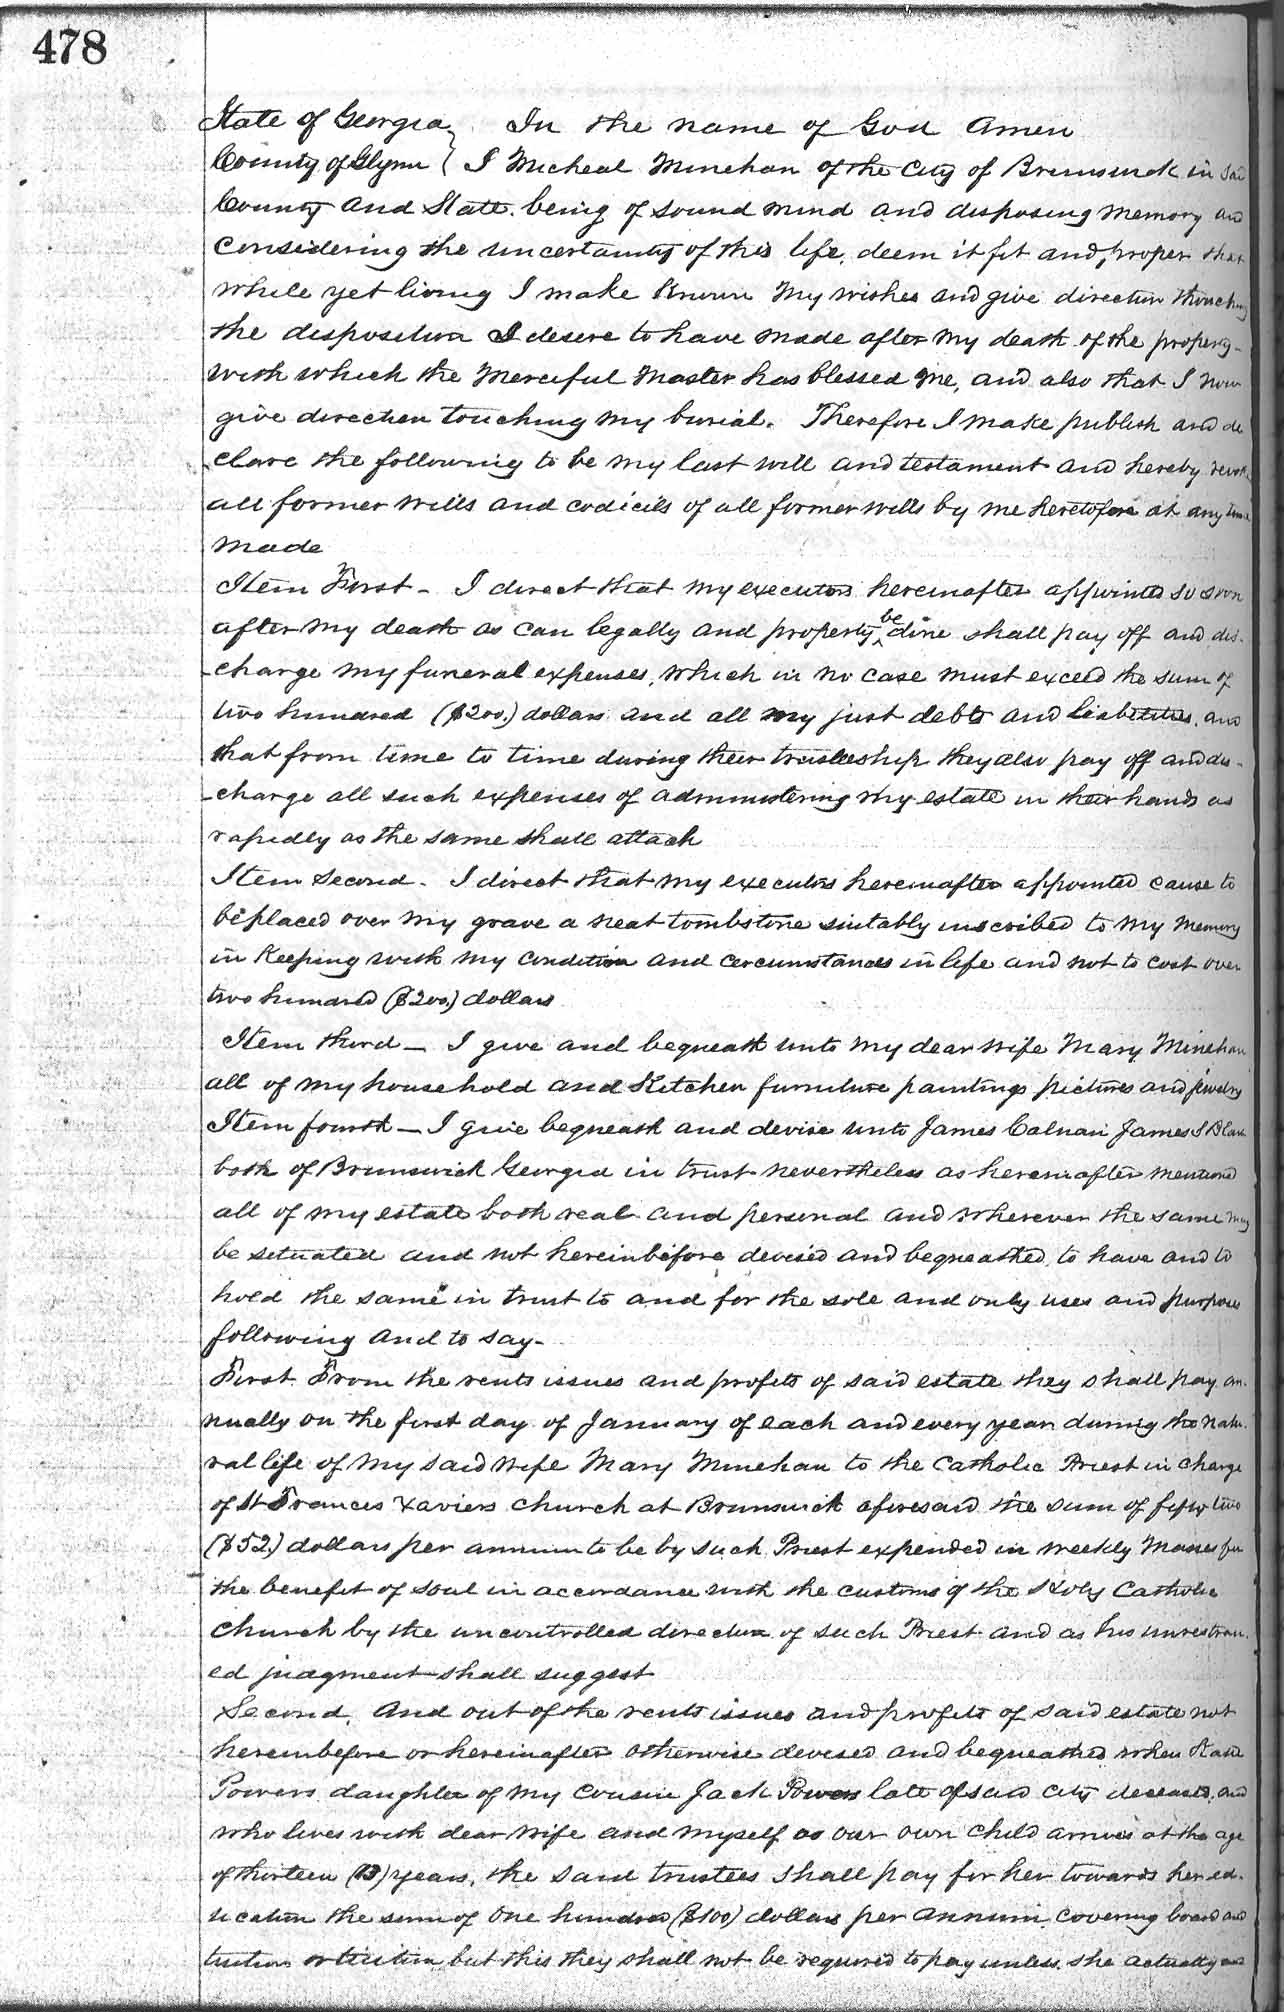 478
State of Georgia } In the name of God Amen
County of Glynn } I Micheal Minehan of the City of Brunswick in said
County and State. being of sound mind and disposing memory and
considering the uncertainty of this life, deem it fit and proper that
while yet living I make Known My wishes and give direction thouching
the disposition I desire to have made after my death of the property-
with which the Merciful Master has blessed me, and also that I now
give direction touching my burial. Therefore I make publish and de
clare the following to be my last will and testament and hereby revoke
all former wills and codicils of all former wills by me heretofore at any time
made
Item First - I direct that my executors hereinafter appointed so soon
after my death as can legally and property be done shall pay off and dis-
-charge my funeral expenses, which in no case must exceed the sum of
two hundred ($200.) dollars and all my just debts and liabilities, and
that from time to time during their trusteeship they also pay off and dis-
-charge all such expenses of administering my estate in their hands as
rapidly as the same shall attach
Item Second - I direct that my executors hereinafter appointed cause to
be placed over my grave a neat tombstone suitably inscribed to my memory
in Keeping with my condition and circumstances in life and not to cost over
two hundred ($200.) dollars
Item third - I give and bequeath unto my dear wife Mary Minehan
all of my household and Kitchen furniture paintings pictures and jewelry
Item fourth - I give bequeath and devise unto James Calnan James S Blain
both of Brunswick Georgia in trust nevertheless as hereinafter mentioned
all of my estate both real and personal and wherever the same may
be setuated and not hereinbefore devised and bequeathed, to have and to
hold the same in trust to and for the sole and only uses and purposes
following and to say-
First. From the rents issues and profits of said estate they shall pay an-
nually on the first day of January of each and every year during the natu-
ral life of my said wife Mary Minehan to the Catholic Priest in charge
of St Frances Xaviers church at Brunswick aforesaid the sum of fifty two
($52.) dollars per annum to be by such Priest expended in weekly Masses for
the benefit of soul in accordance with the customs of the Holy Catholic
Church by the uncontrolled direction of such Priest and as his unrestrain-
ed judgment shall suggest
Second. And out of the rents issues and profits of said estate not
hereinbefore or hereinafter otherwise devised and bequeathed when Katie
Powers daughter of my Cousin Jack Powers late of said City deceased, and
who lives with dear wife and myself as our own Child arrives at the age
of thirteen (13) years, the said trustees shall pay for her towards her ed-
ucation the sum of One hundred ($100) dollars per annum. covering board and
tuition or tuition but this they shall not be required to pay unless she actually